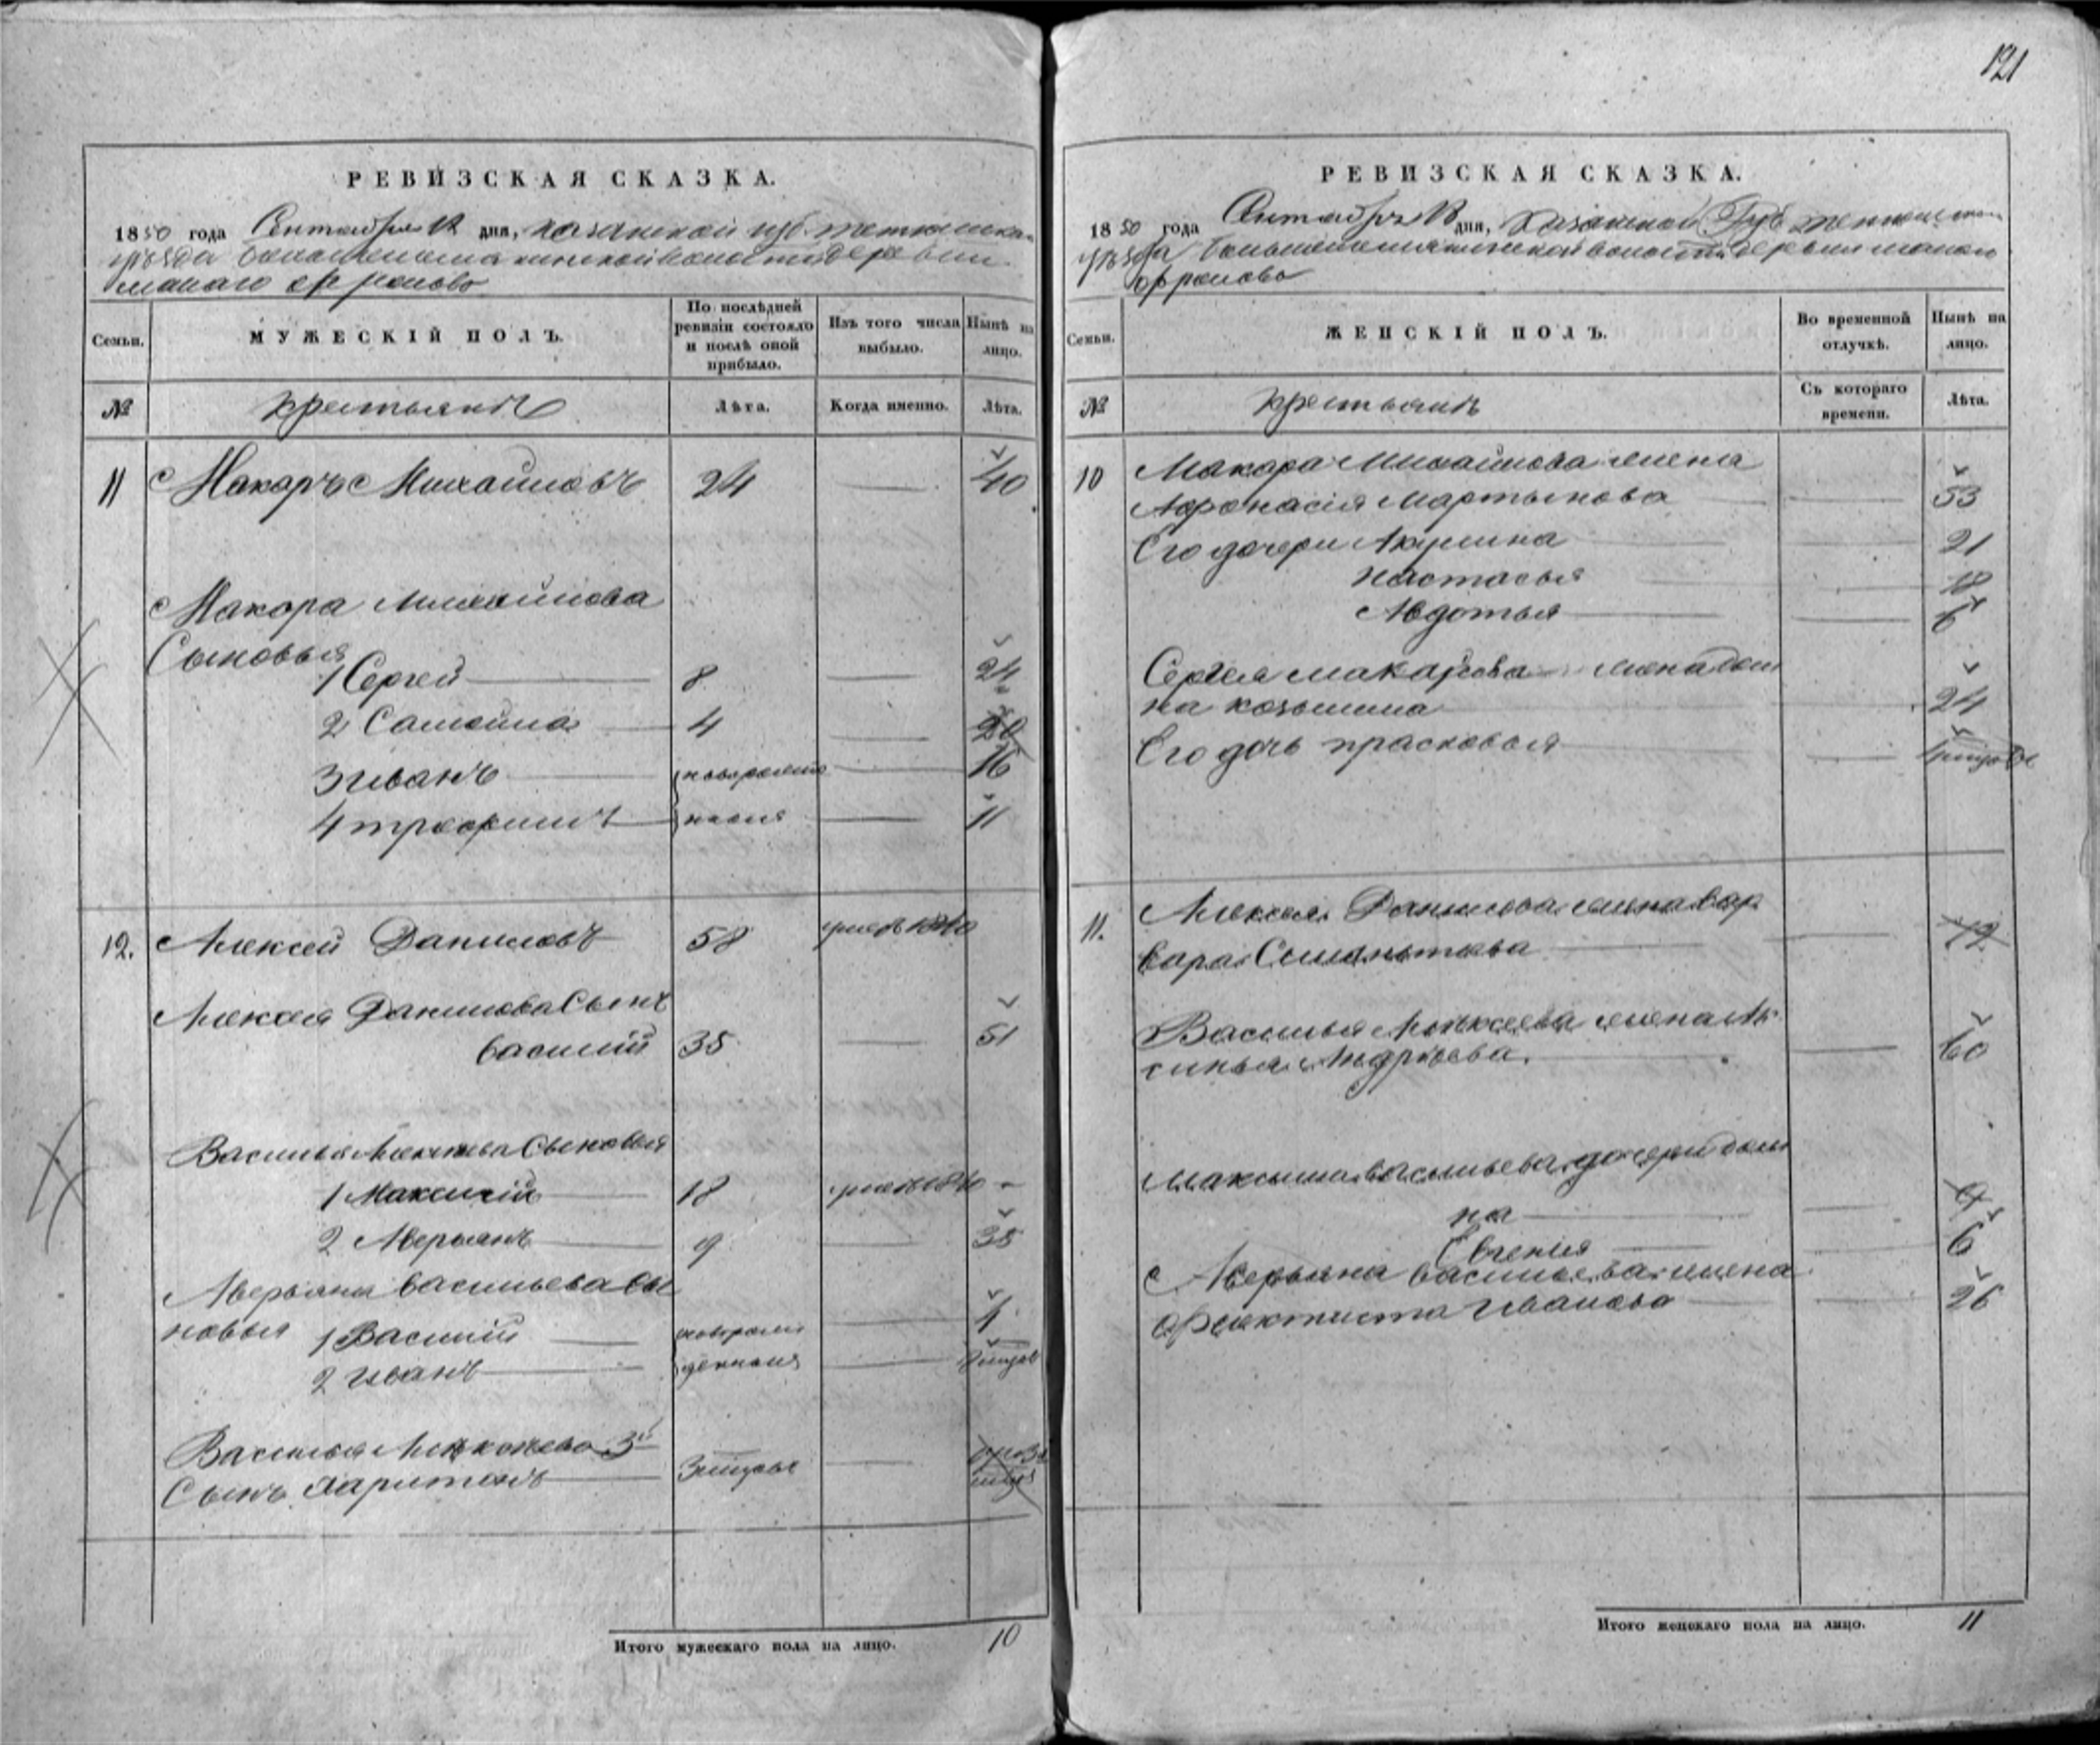 121
РЕВИЗСКАЯ СКАЗКА.
1850 года Сентября 12 дня, казанской губ. тетюшска-
уѣзда деревни
малаго фролово
Семьи.
МУЖЕСКІЙ ПОЛЪ.
По послѣдней ревизіи состояло и послѣ оной прибыло.
Изъ того числа выбыло.
Нынѣ на лицо.
№
крестьянѣ
Лѣта.
Когда именно.
Лѣта.
11 Макаръ Михайловъ 24 — 40
Макара Михайлова
Сыновья
1 Сергей 8 — 24
2 Самойла 4 — 20
3 иванъ новорожде — 16
4 трофимъ нныя — 11
12. Алексей Даниловъ 58 умеръ 1840
Алексея Данилова Сынъ
василий 35 — 51
Василья Алексеева Сыновья
1 Максимъ 18 —
2 Аверьянъ 9 — 35
Аверьяна васильева сы
новья 1 Василий новорожд — 4
2 иванъ денныя —
Василья Алексеева 3й
Сынъ Харитонъ —
Итого мужескаго пола на лицо. 10
РЕВИЗСКАЯ СКАЗКА.
1850 года Сентября 12 дня, Казанской Губ тетюшска-
уѣзда волости деревни малаго
фролово
Семьи.
ЖЕНСКІЙ ПОЛЪ.
Во временной отлучкѣ.
Нынѣ на лицо.
№
крестьянѣ
Съ котораго времени.
Лѣта.
10 Макара Михайлова жена
Афонасія Мартынова — 53
Его дочери Акулина — 21
настасья — 18
Авдотья — 6
Сергея макарова жена дом
на козьмина — 24
Его дочь прасковья —
11. Алексея Данилова жена вар
вара — 72
Василья Алексеева жена Ак
синья Андрѣева. — 60
Максима васильева дочери дом
на — 9
Евгения — 6
Аверьяна васильева жена
феоктиста Иванова — 26
Итого женскаго пола на лицо. 11